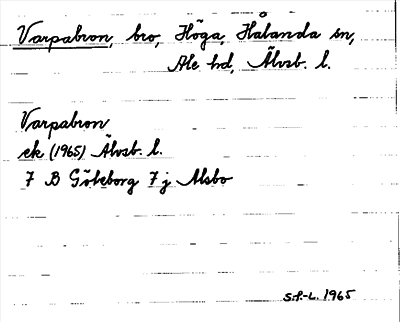 Varpabron, bro, Höga, Hålanda sn,
Ale hd, Älvsb. l.
Varpabron
ek (1965) Älvsb. l.
7 B Göteborg 7 j Alsbo
S.P.-L. 1965